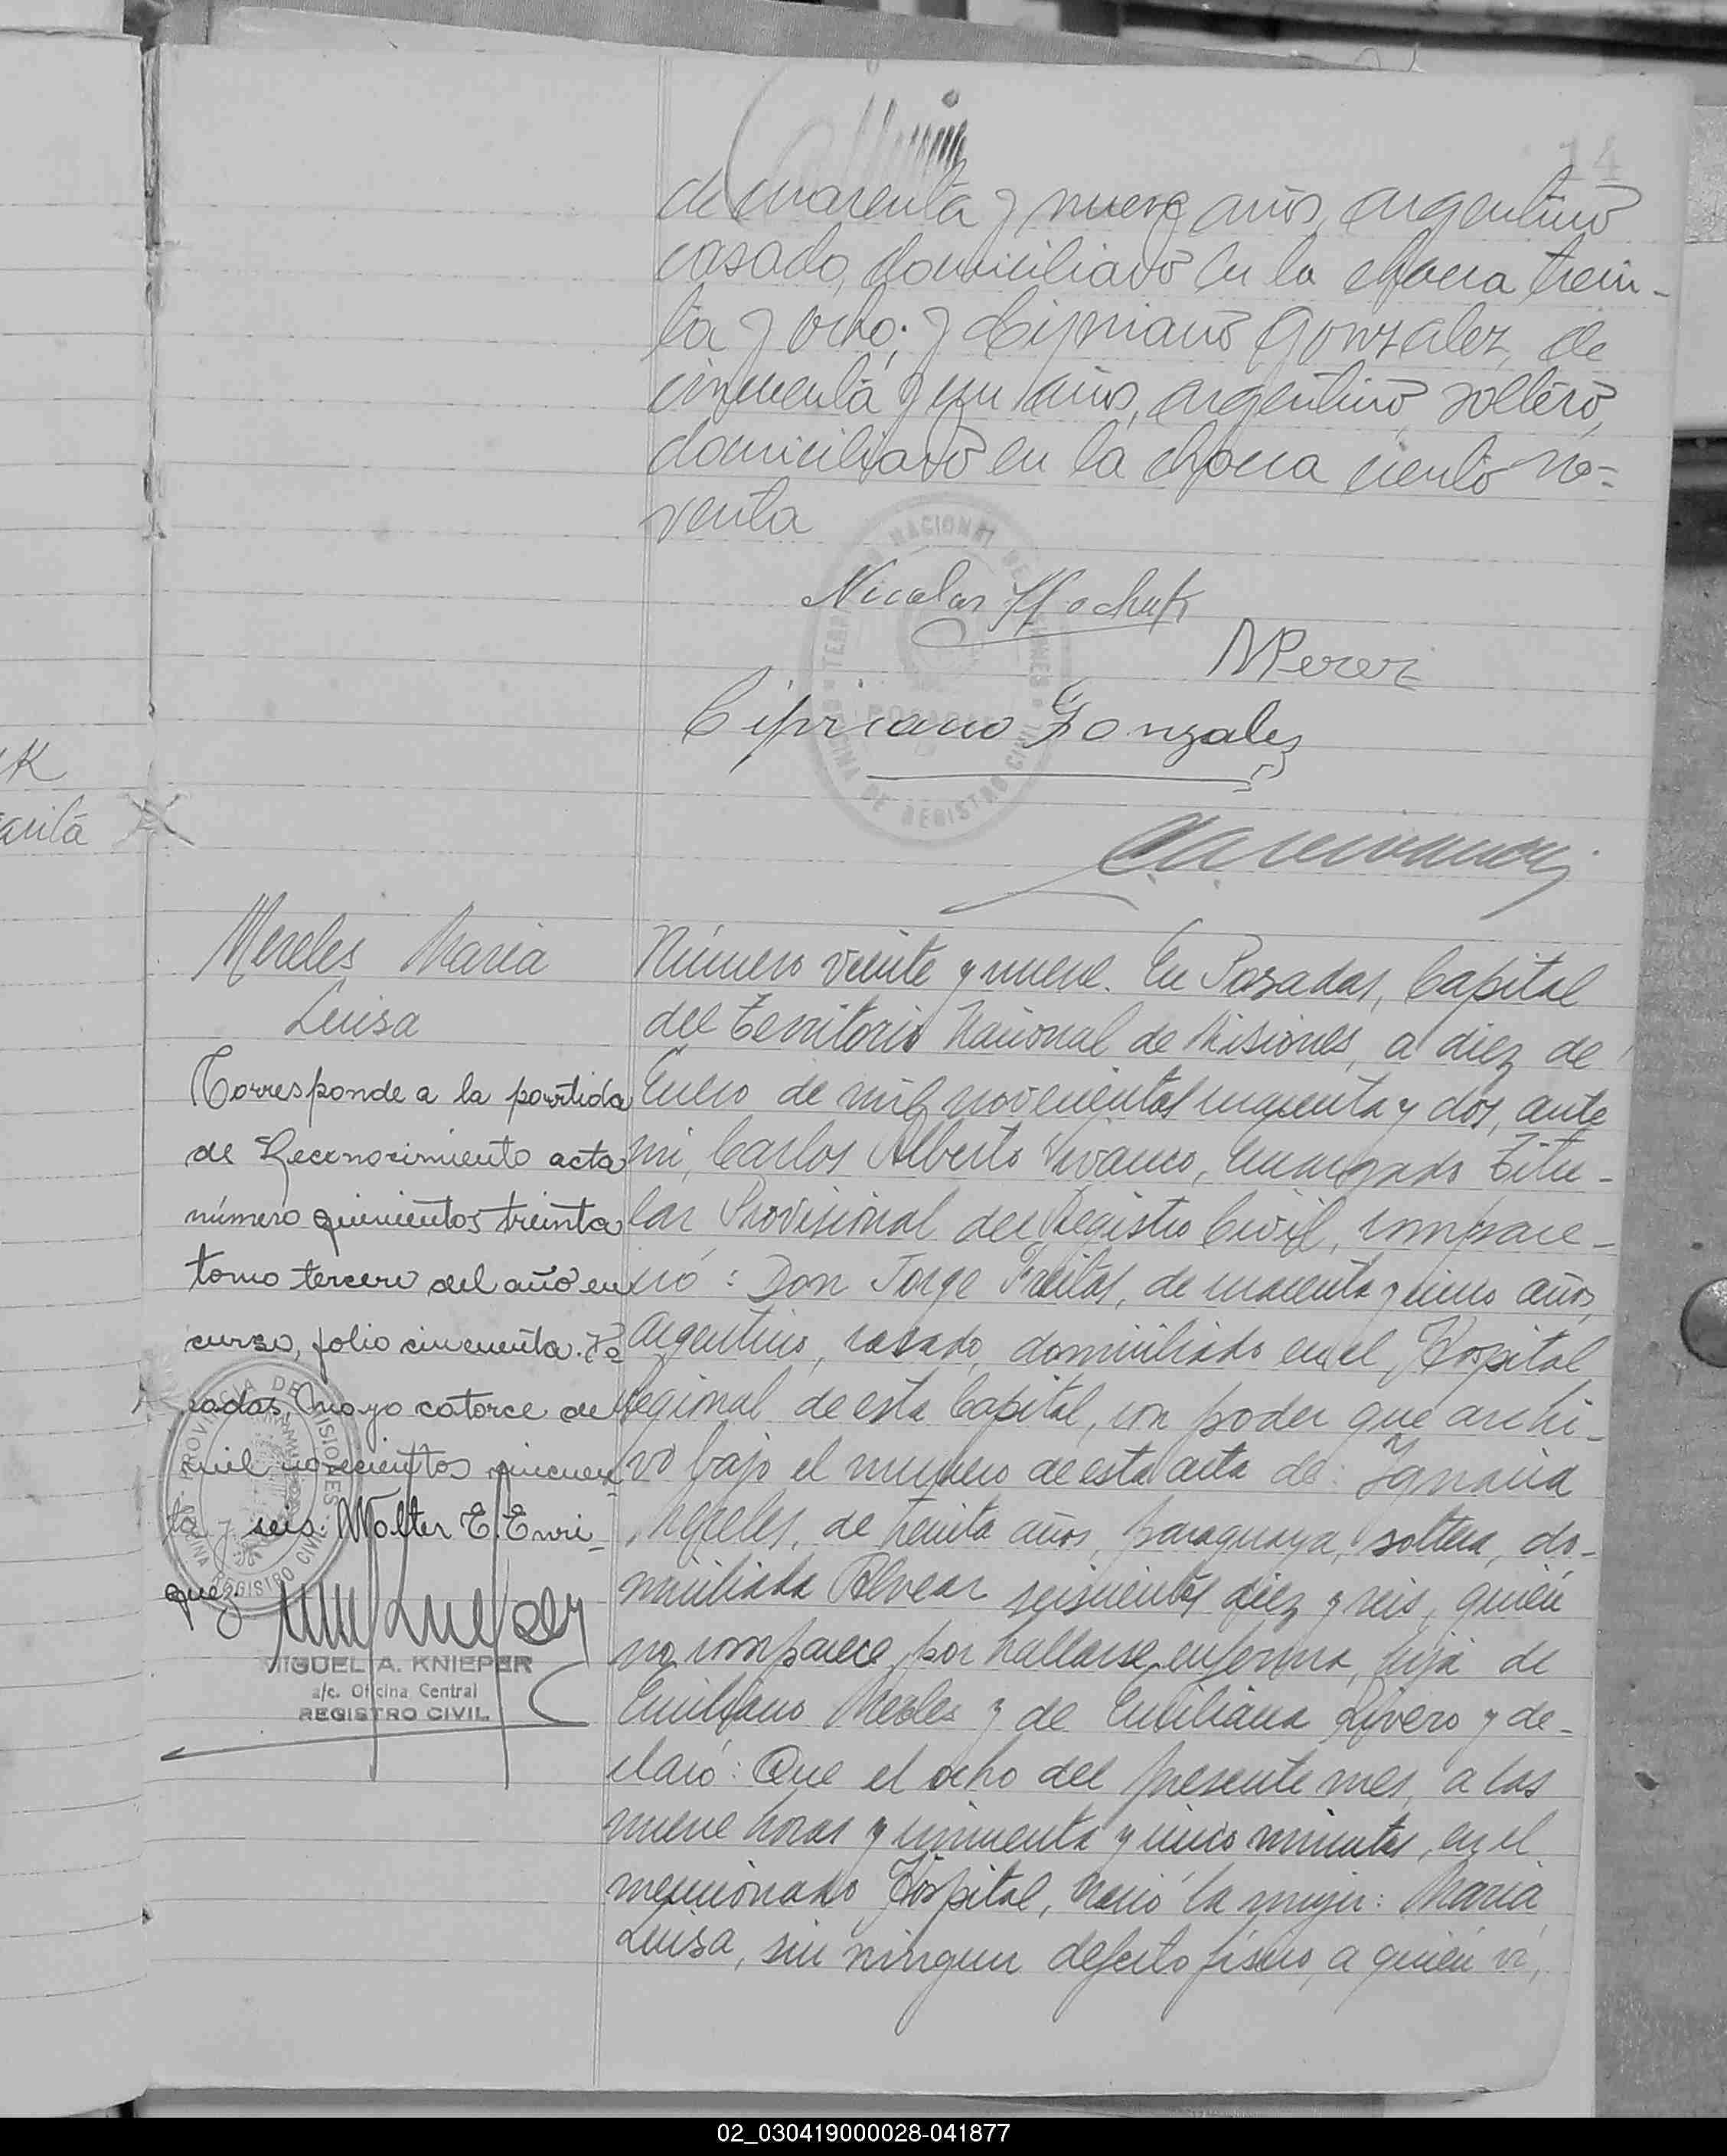 14
de cuarenta y nueve años, argentino
casado, domiciliado en la chacra trein-
ta y ocho; y Cipriano Gonzalez, de
cincuenta y un años, argentino, soltero,
domiciliado en la chacra ciento no-
venta
Nicolas
M Perez
Cipriano Gonzalez
TERRITORIO NACIONAL DE MISIONES
POSADAS
OFICINA DE REGISTRO CIVIL
Mereles Maria
Luisa
Corresponde a la partida
de Reconocimiento acta
número quinientos treinta
tomo tercero del año en
curso, folio cincuenta. Po
sadas, Mayo catorce de
mil novecientos cincuen
ta y seis. Walter E. Enri-
quez
PROVINCIA DE MISIONES
OFICINA REGISTRO CIVIL
MIGUEL A. KNIEPER
a/c. Oficina Central
REGISTRO CIVIL
Número veinte y nueve. En Posadas, Capital
del Territorio Nacional de Misiones, a diez de
Enero de mil novecientos cincuenta y dos, ante
mi, Carlos Alberto Vivanco, Encargado Titu-
lar Provisional del Registro Civil, compare-
ció: Don Jorge Freitas, de cuarenta y cinco años,
Argentino, casado, domiciliado en el Hospital
Regional de esta Capital, con poder que archi-
vo bajo el numero de esta acta de: Ignacia
Mereles, de treinta años, paraguaya, soltera, do-
miciliada Alvear seiscientos diez y seis, quién
no comparece por hallarse enferma, hija de
Emiliano Mereles y de Emiliana Rivero y de-
claró: Que el ocho del presente mes, a las
nueve horas y cincuenta y cinco minutos, en el
mencionado Hospital, nació la mujer: Maria
Luisa, sin ningun defecto físico, a quién vi,
ik
arita
02_030419000028-041877